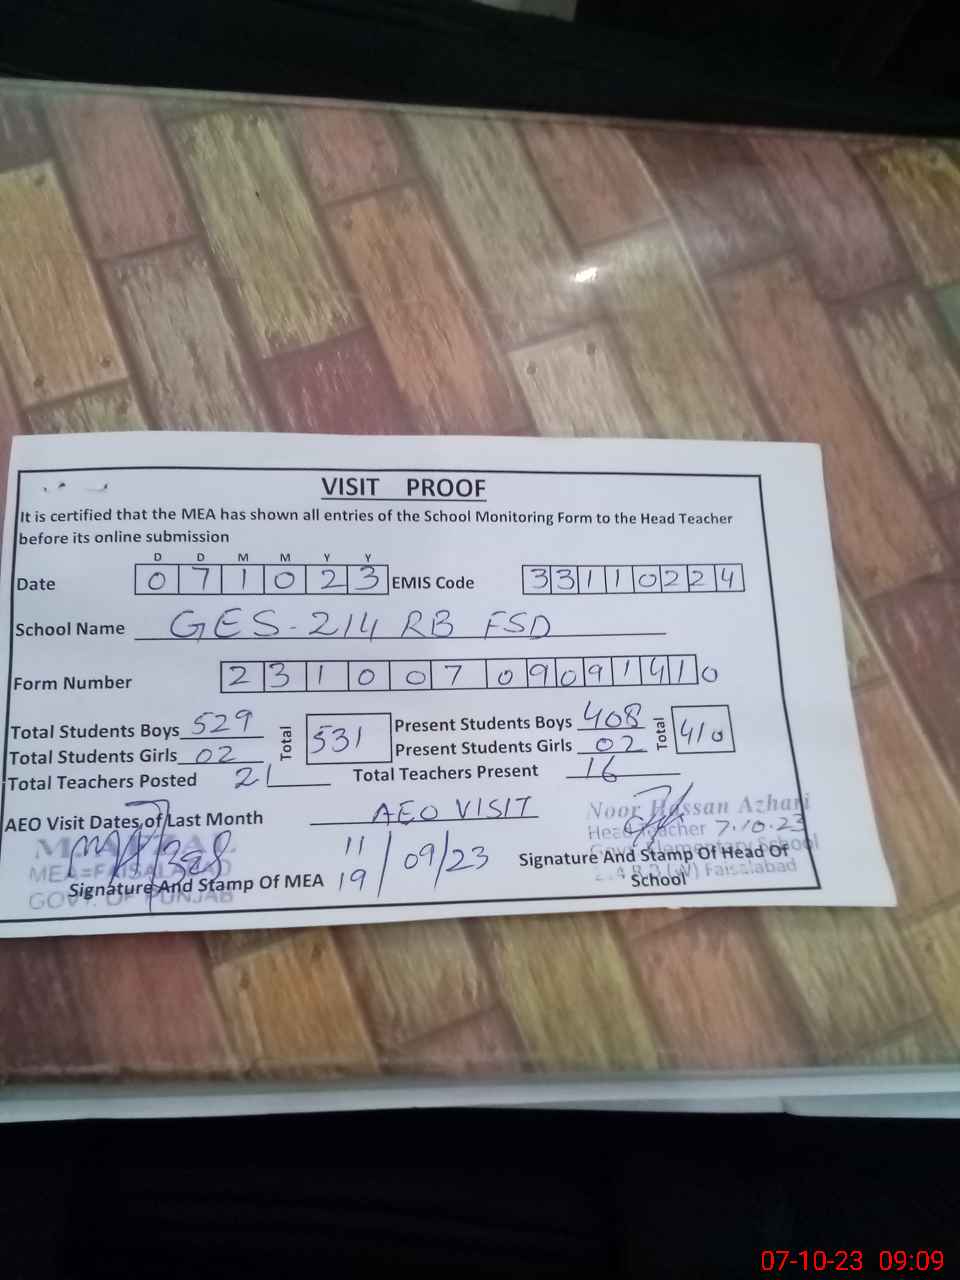 VISIT PROOF
It is certified that the MEA has shown all entries of the School Monitoring Form to the Head Teacher
before its online submission
D D M M Y Y
Date 0 7 1 0 2 3 EMIS Code 3 3 1 1 0 2 2 4
School Name GES-214 RB FSD
Form Number 2 3 1 0 0 7 0 9 0 9 1 4 1 0
Total Students Boys 529 Total 531 Present Students Boys 408 Total 410
Total Students Girls 02 Present Students Girls 02
Total Teachers Posted 21 Total Teachers Present 16
AEO Visit Dates of Last Month AEO VISIT
11 / 09/23
19
Noor Hassan Azhari
Head Teacher 7.10.23
Govt. Elementary School
(W) Faisalabad
MEA=FAISALABAD
GOVT. OF PUNJAB
Signature And Stamp Of MEA
Signature And Stamp Of Head Of
School
07-10-23 09:09